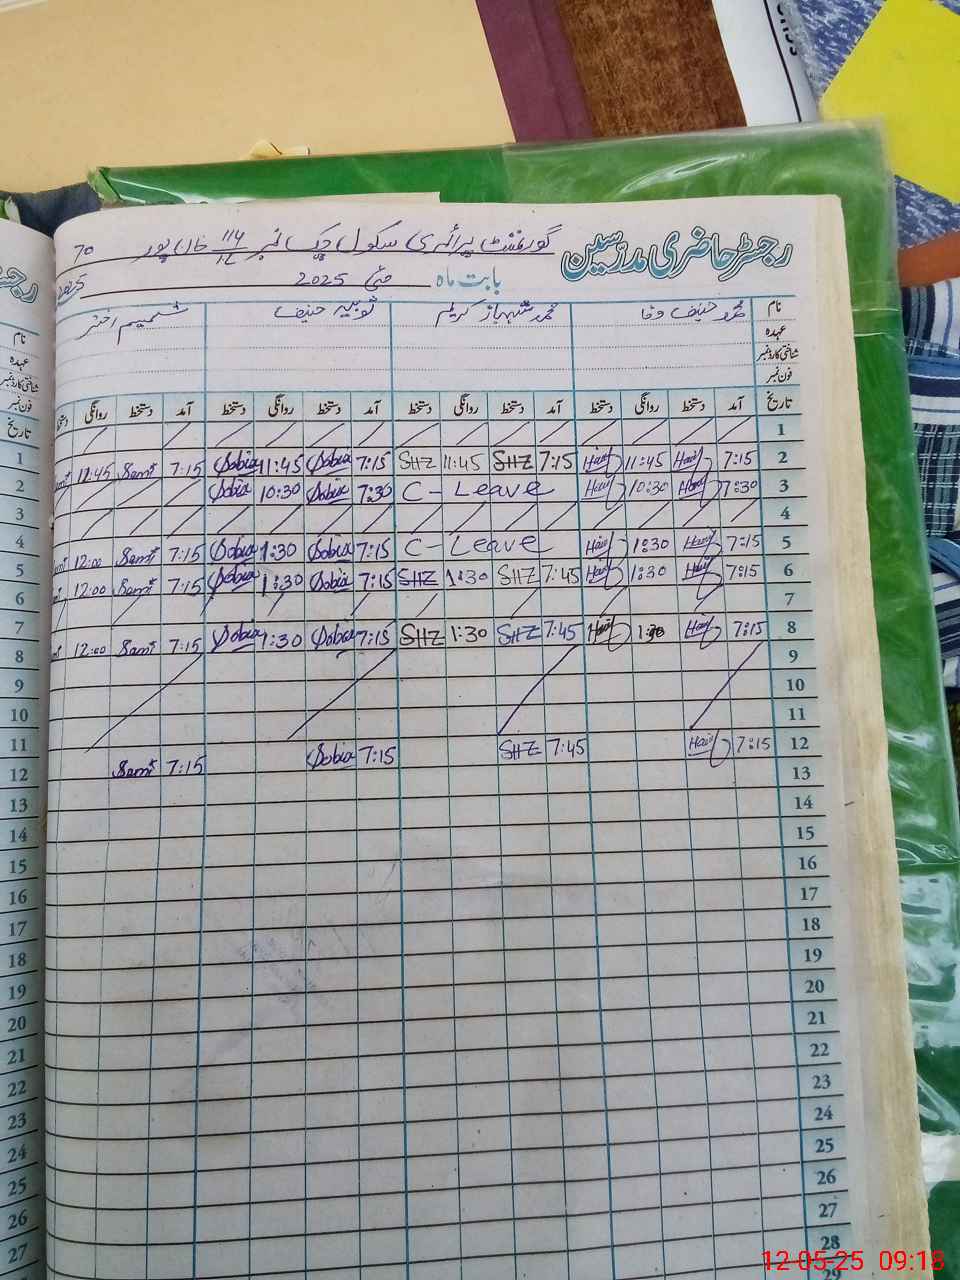 رجسٹر حاضری مدرسین
گورنمنٹ پرائمری سکول چک نمبر 114 خان پور 70
بابت ماہ مئی 2025
نام محمد حنیف وفا محمد شہباز کریم ثوبیہ حنیف شمیم اختر
عہدہ
شناختی کارڈ نمبر
فون نمبر
تاریخ آمد دستخط روانگی دستخط آمد دستخط روانگی دستخط آمد دستخط روانگی دستخط آمد دستخط روانگی
1
2 7:15 Hanif 11:45 Hanif 7:15 SHZ 11:45 SHZ 7:15 Sobia 11:45 Sobia 7:15 Sami 12:45
3 7:30 Hanif 10:30 Hanif C- Leave 7:30 Sobia 10:30 Sobia
4
5 7:15 Hanif 1:30 Hanif C- Leave 7:15 Sobia 1:30 Sobia 7:15 Sami 12:00
6 7:15 Hanif 1:30 Hanif 7:45 SHZ 1:30 SHZ 7:15 Sobia 1:30 Sobia 7:15 Sami 12:00
7
8 7:15 Hanif 1:30 Hanif 7:45 SHZ 1:30 SHZ 7:15 Sobia 1:30 Sobia 7:15 Sami 12:00
9
10
11
12 7:15 Hanif 7:45 SHZ 7:15 Sobia 7:15 Sami
13
14
15
16
17
18
19
20
21
22
23
24
25
26
27
28
29
نام
عہدہ
شناختی کارڈ نمبر
فون نمبر
تاریخ
1
2
3
4
5
6
7
8
9
10
11
12
13
14
15
16
17
18
19
20
21
22
23
24
25
26
27
12-05-25 09:18